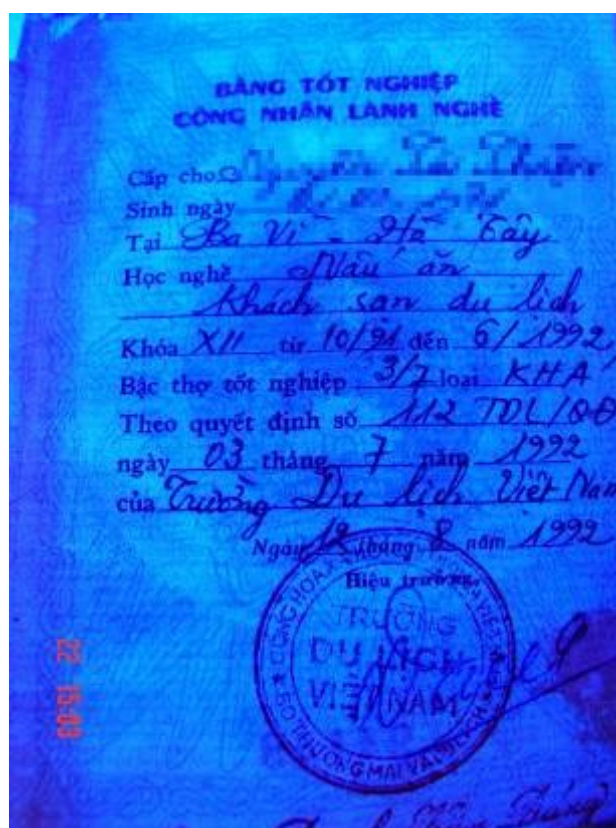 BẰNG TỐT NGHIỆP
CÔNG NHÂN LÀNH NGHỀ
Cấp cho
Sinh ngày
Tại Ba Vì - Hà Tây
Học nghề Nấu ăn
Khách sạn du lịch
Khóa XII từ 10/91 đến 6/1992
Bậc thợ tốt nghiệp 3/7 loại KHÁ
Theo quyết định số 112 TDL/QĐ
ngày 03 tháng 7 năm 1992
của Trường Du lịch Việt Nam
Ngày 12 tháng 8 năm 1992
Hiệu trưởng
TRƯỜNG
DU LỊCH
VIỆT NAM
BỘ THƯƠNG MẠI VÀ DU LỊCH
22 15:03